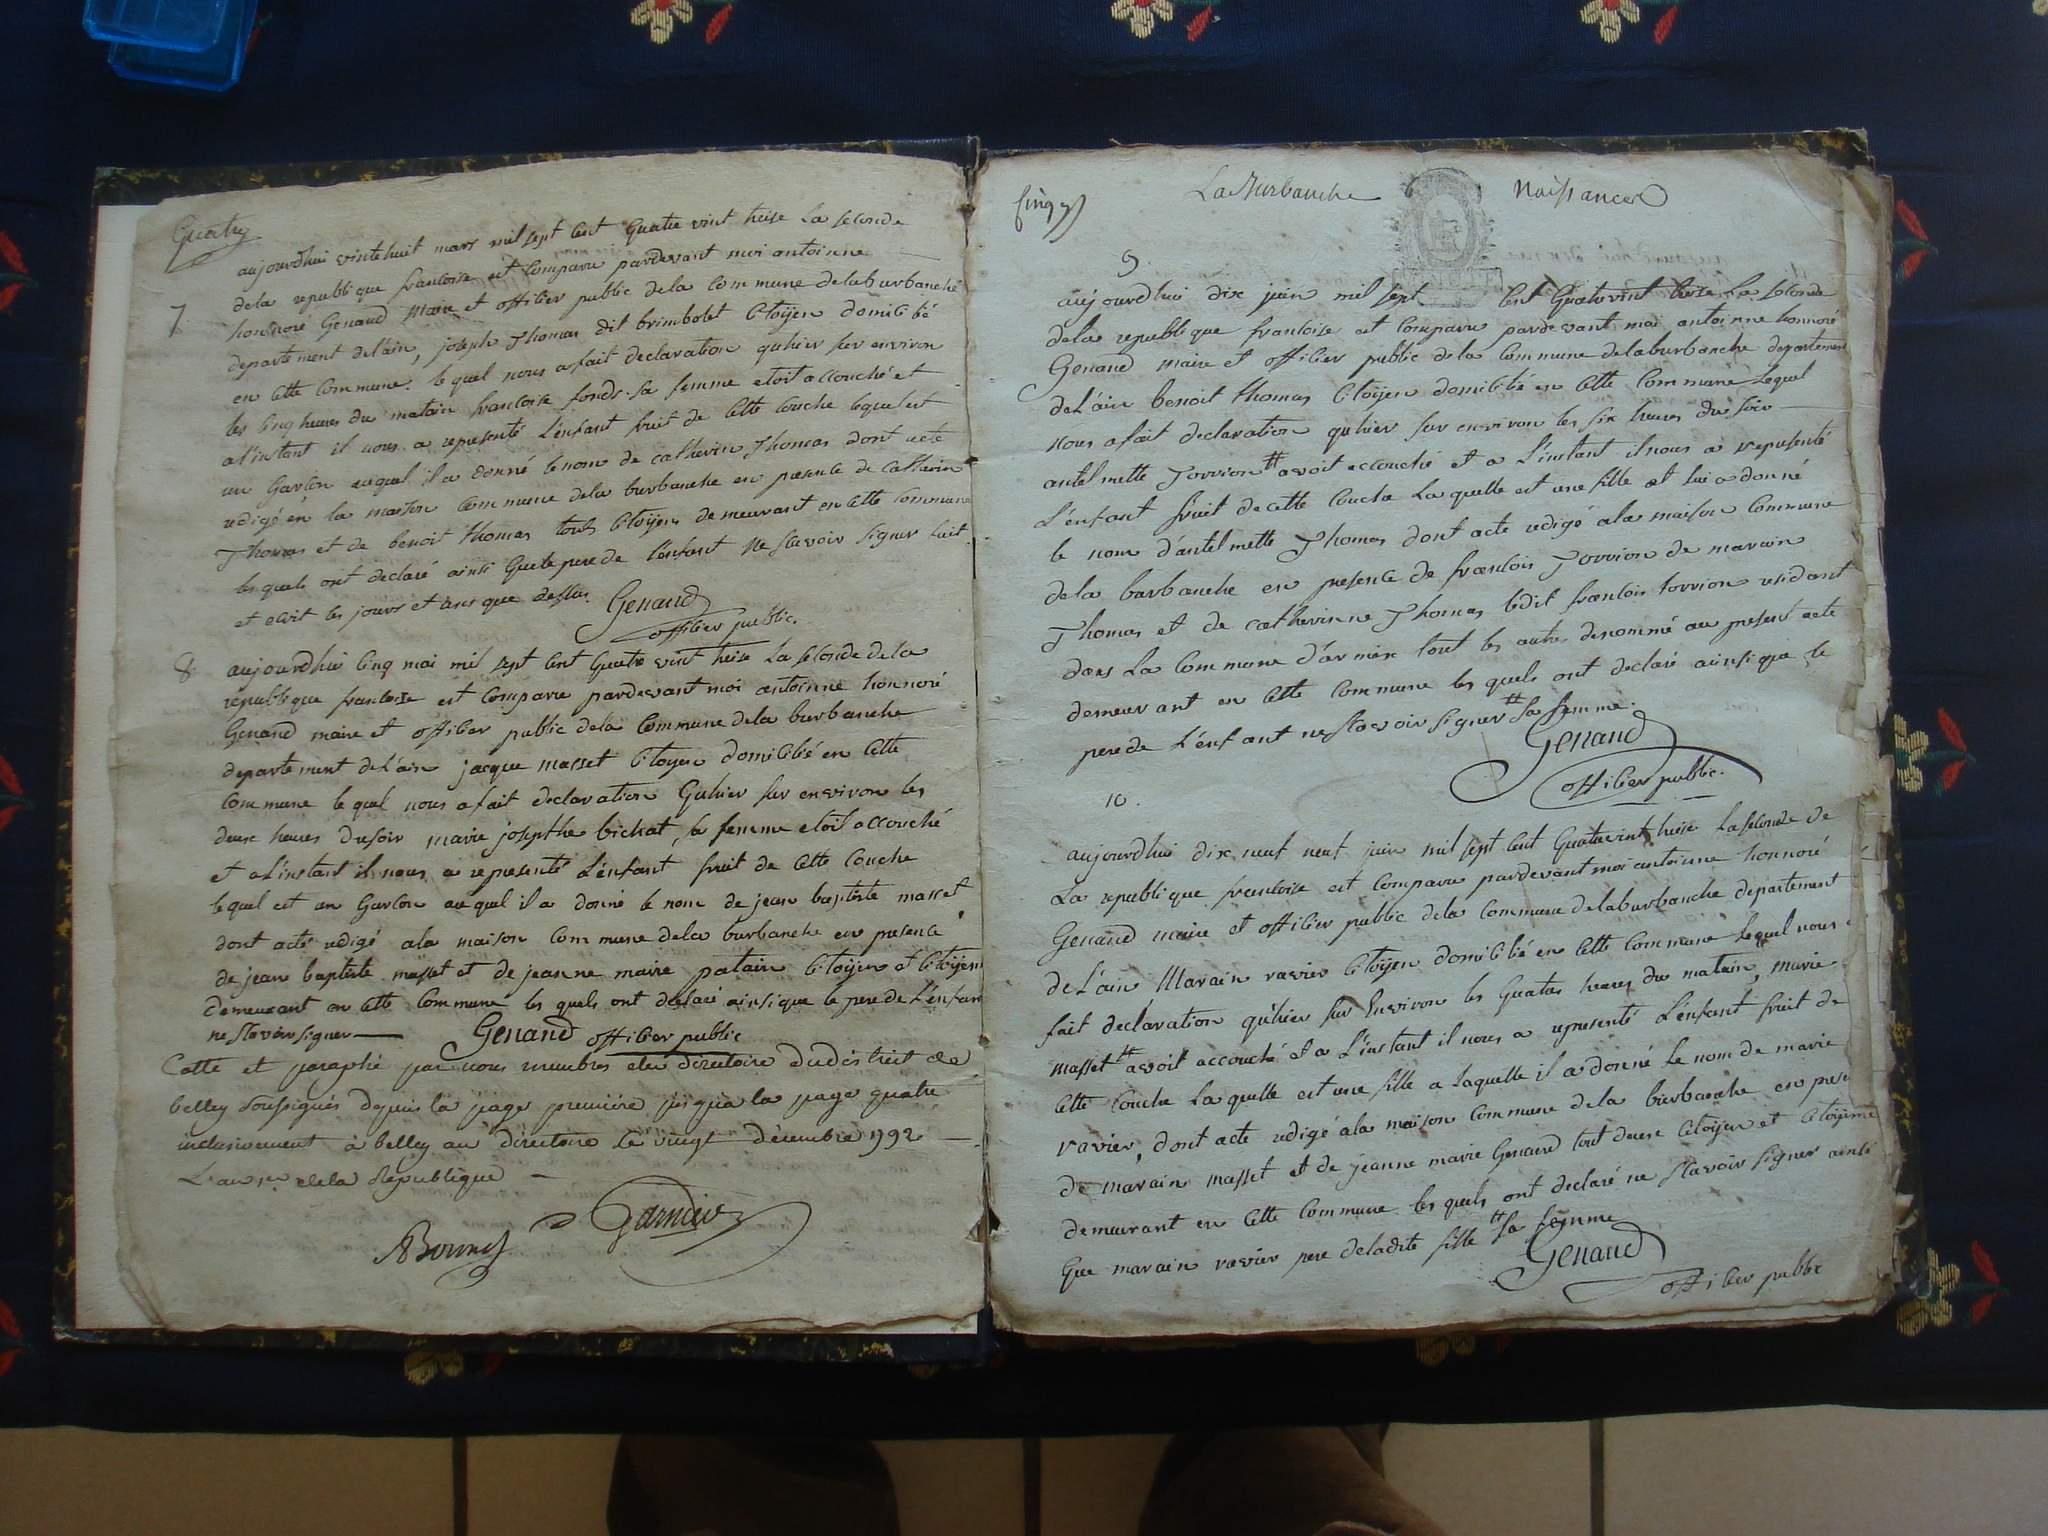 Quatre
7
aujourdhui vintehuit mars mil sept Cent Quatre vint treise La seconde
dela republique francoise est Comparu pardevant moi antoinne
honnoré Genand Maire et officier public dela Commune delaburbanche
departement delain, joseph Thomas dit brimbolet Citoÿen domicilié
en Cette Commune. lequel nous a fait declaration quhier sur environ
les Cinq heures du matain francoise fonds sa femme etoit accouché et
a l'instant il nous a representé L'enfant fruit de Cette Couche lequel est
un Garcon auquel il a donné le nom de catherin Thomas dont acte
redigé en la maison Commune dela burbanche en presence de catherin
Thomas et de benoit thomas touts Citoÿens demeurant en Cette Commune
les quels ont declaré ainsi Que le pere de l'enfant Ne scavoir signer fait
et clos les jours et ans que dessus. Genand
officier public.
8
aujourdhui Cinq mai mil sept Cent Quatre vint treise La seconde dela
republique francoise est Comparu pardevant moi antoinne honnoré
Genand maire et officier public dela Commune dela burbanche
departement deL'ain jacque masset Citoyen domicilié en Cette
Commune le quel nous a fait declaration Quhier sur environ les
deuse heures dusoir marie josepthe bichat, sa femme etoit accouché
et a L'instant il nous a representé L'enfant fruit de Cette Couche
lequel est un Garcon auquel il a donné le nom de jean baptiste masset
dont acte redigé ala maison Commune dela burbanche en presence
de jean baptiste masset et de jeanne marie patain Citoÿen et Citoÿenne
demeurant en Cette Commune les quels ont declaré ainsi que le pere de L'enfant
ne scavoir signer Genand officier public
Cotté et paraphé par nous membres du directoire du district de
belley soussignés depuis la page premiere jusqua la page quatre
inclusivement à belley au directoire le vingt décembre 1792
L'an 1er de la République
Garnier
Cinq
La Burbanche Naissances
9.
aujourdhui dix juin mil sept Cent Quatrevint treise La seconde
dela republique francoise est Comparu pardevant moi antoinne honnoré
Genand maire et officier public dela Commune delaburbanche departement
deL'ain benoit thomas Citoÿen domicilié en Cette Commune Lequel
nous a fait declaration quhier sur environ les six heures du soir
antelmette Torrion # avoit accouché et a L'instant il nous a representé
L'enfant fruit de cette Couche La quelle est une fille et lui a donné
le nom d'antelmette Thomas dont acte redigé ala maison Commune
dela burbanche en presence de francois Torrion de marain
Thomas et de catherinne Thomas ledit francois torrion residant
dans La Commune d'armix tout les autre denommé au present acte
demeurant en Cette Commune les quels ont declaré ainsi que le
pere de L'enfant ne scavoir signer # sa femme.
Genand
officier public.
10.
aujourdhui dix neuf neuf juin mil sept Cent Quatrevint treise La seconde de
La republique francoise est Comparu pardevant moi antoinne honnoré
Genand maire et officier public dela Commune delaburbanche departement
de L'ain Marain ravier Citoÿen domicilié en Cette Commune Lequel nous a
fait declaration quhier sur Environ les Quatres heures du matain, marie
masset # avoit accouché et a L'instant il nous a representé L'enfant fruit de
Cette Couche La quelle est une fille a laquelle il a donné Le nom de marie
ravier, dont acte redigé ala maison Commune dela burbanche en pres
de marain masset et de jeanne marie Genand tout deuse Citoÿen et Citoÿenne
demeurant en Cette Commune les quels ont declaré ne scavoir signer ainsi
Que marain ravier pere deladite fille # sa femme
Genand
officier public